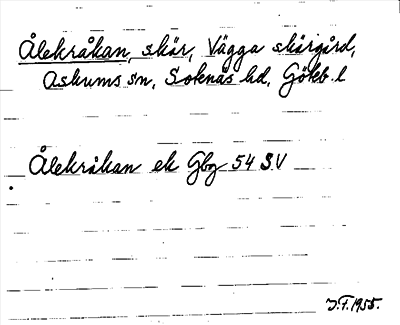 Ålekråkan, skär, Vägga skärgård,
Askums sn, Sotenäs hd, Göteb. l
Ålekråkan ek Gbg 54 SV
J.F. 1955.